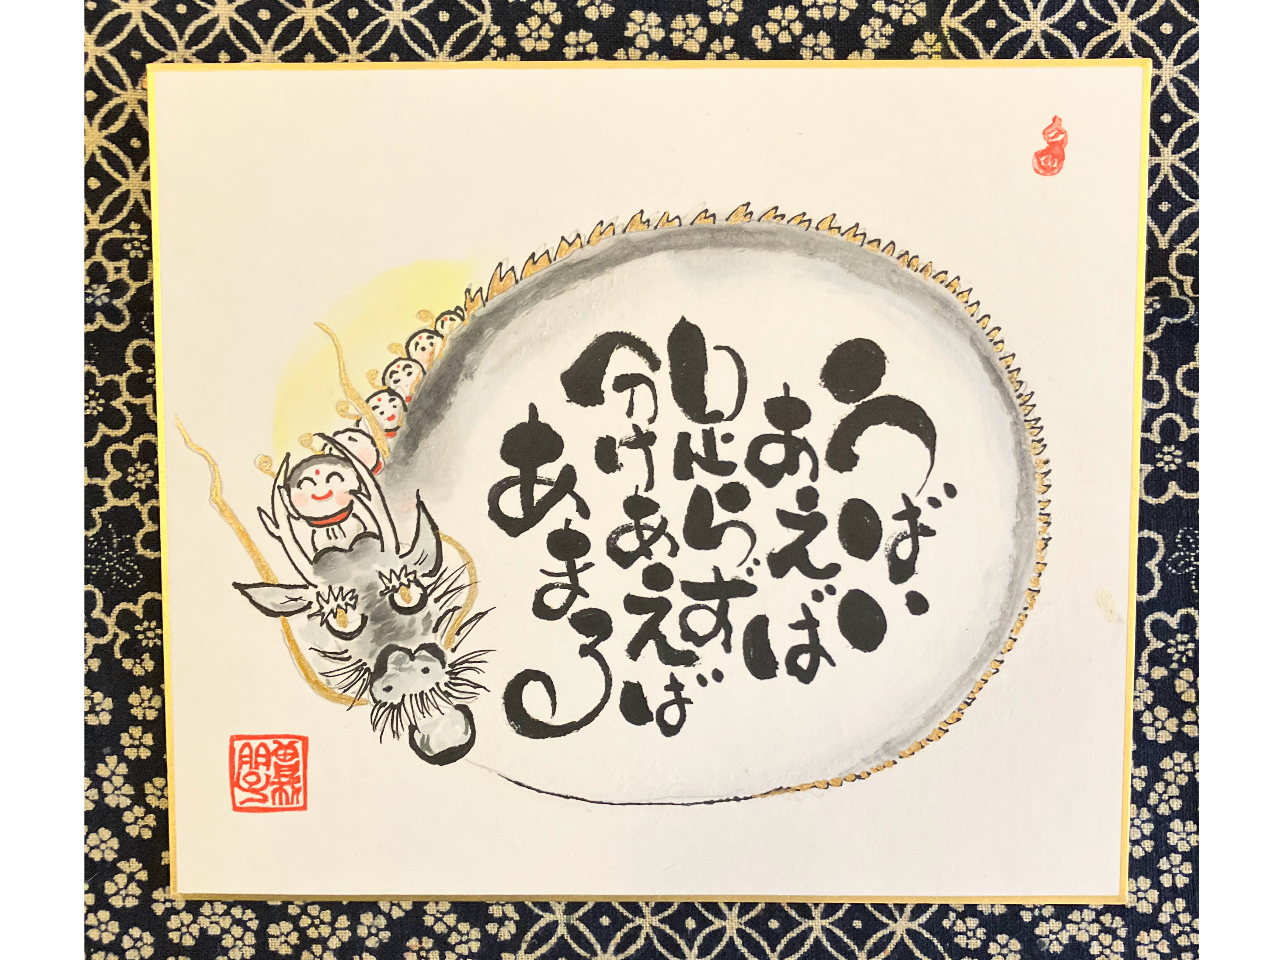 うばい
あえば
足らず
分けあえば
あまる